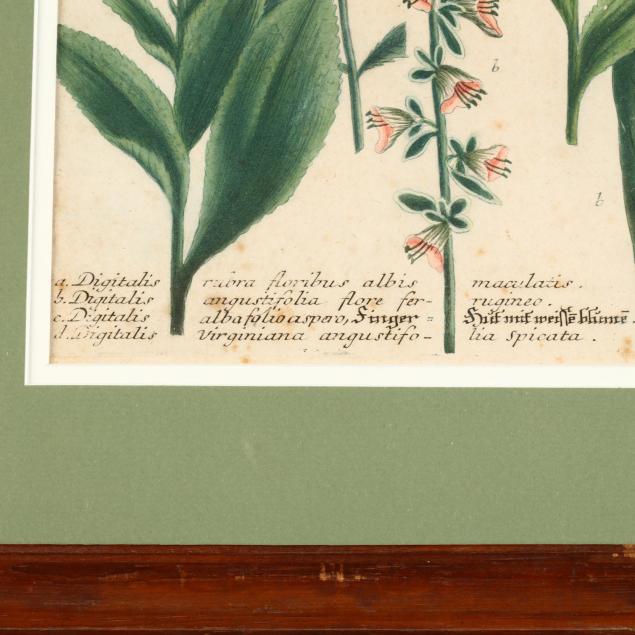 b
b
a. Digitalis rubra floribus albis maculatis.
b. Digitalis angustifolia flore fer- rugineo.
c. Digitalis alba folio aspero, Finger = Hut mit weissē blumē.
d. Digitalis Virginiana angustifo- lia spicata.